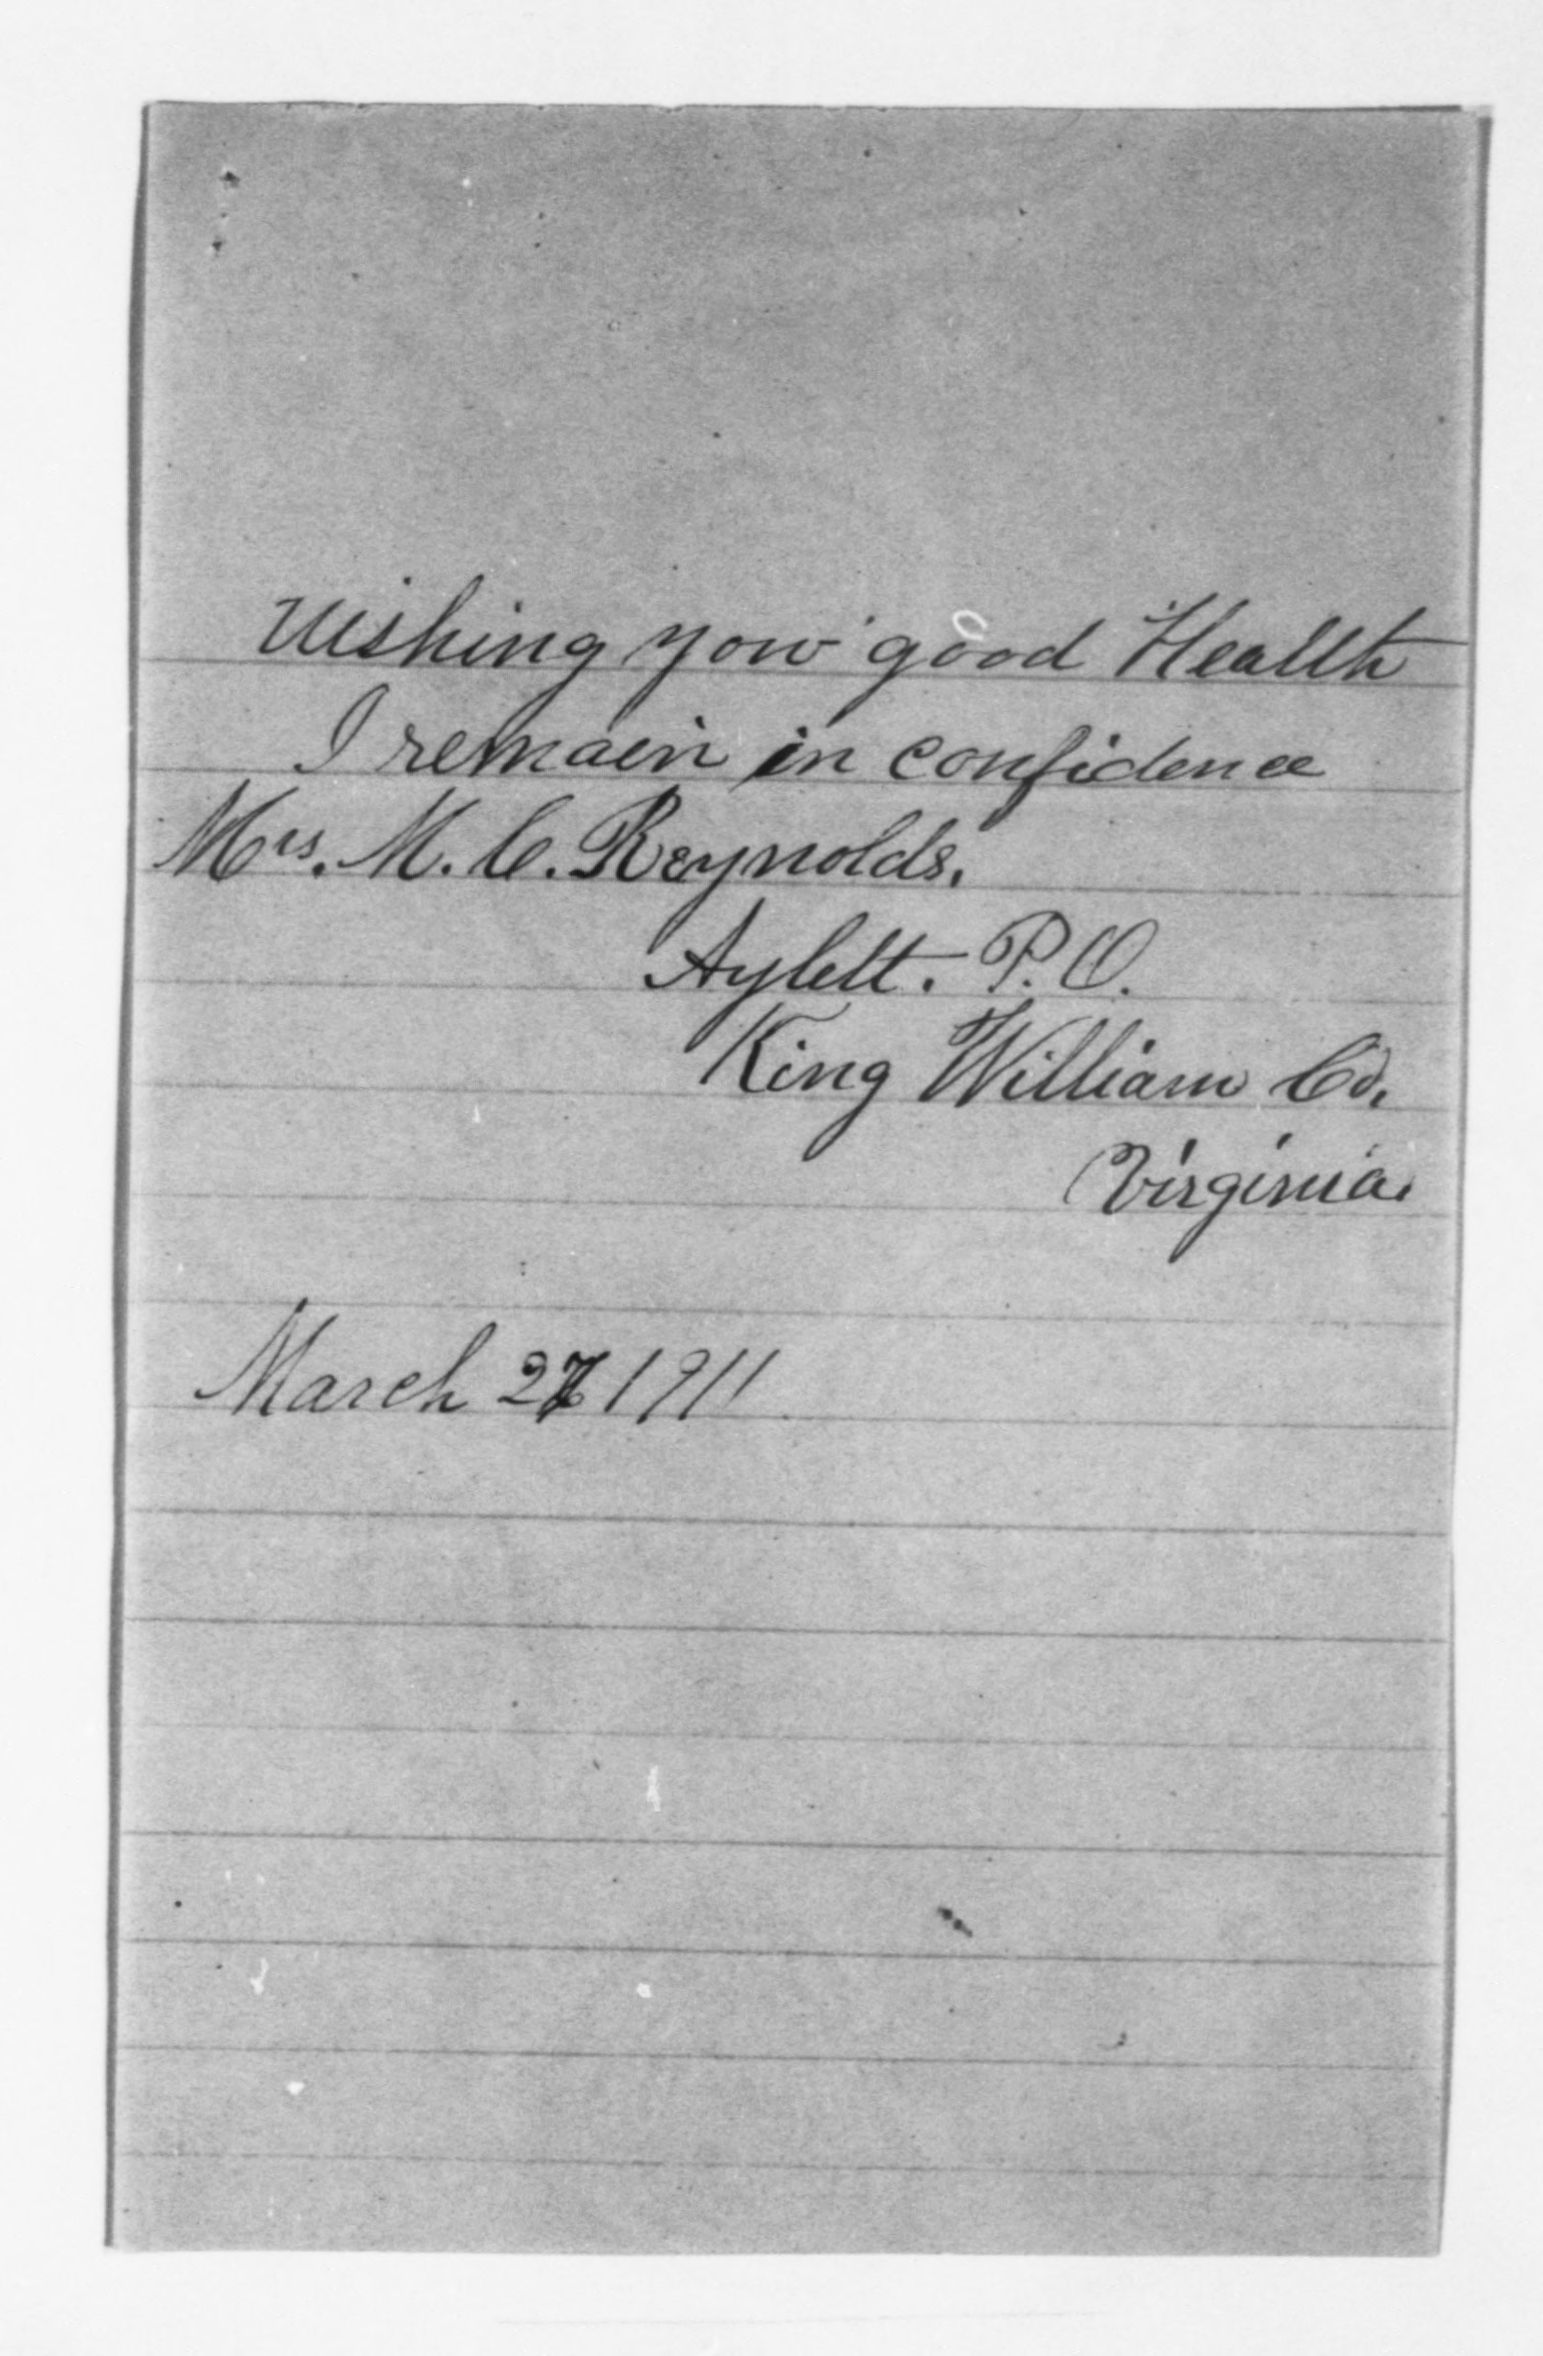 Wishing you good Health
I remain in confidence
Mrs. M. C. Reynolds.
Aylett. P. O.
King William Co.
Virginia.
March 27 1911